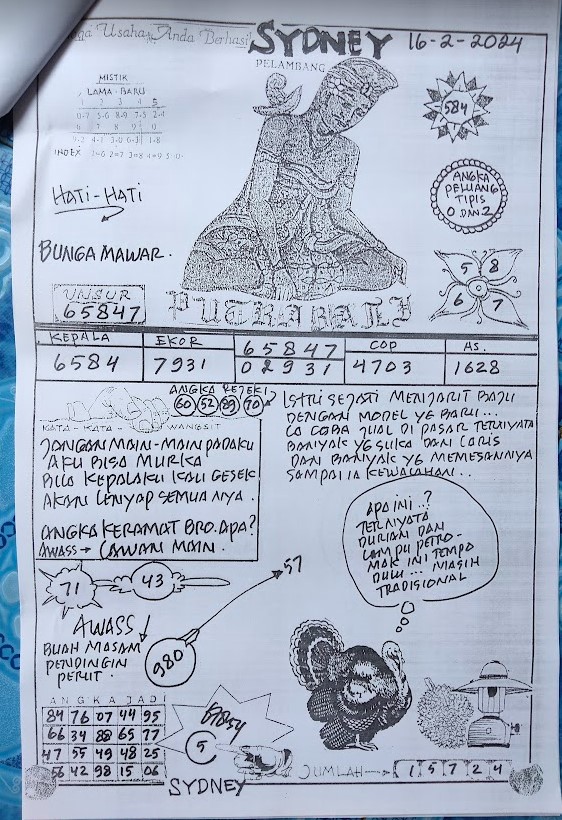 Usaha Anda Berhasil
SYDNEY 16-2-2024
PELAMBANG
MISTIK
LAMA - BARU
1 2 3 4 5
0-7 5-6 8-9 7-5 2-4
6 7 8 9 0
INDEX
584
HATI-HATI
ANGKA
PELUANG
TIPIS
0 DAN 2
BUNGA MAWAR.
5 8
6 7
UNSUR
65847
PUTRI BALI
KEPALA EKOR 65847 COP AS.
6584 7931 02931 4703 1628
ANGKA REJEKI
60 52 89 70
KATA - KATA WANGSIT
JANGAN MAIN-MAIN PADAKU
AKU BISA MURKA
BILA KEPALAKU KAU GESEK
AKAN LENYAP SEMUANYA.
ANGKA KERAMAT BRO. APA?
AWASS → LAWAN MAIN.
ISTRI SEJATI MENJARIT BAJU
DENGAN MODEL YG BARU...
IA COBA JUAL DI PASAR TERNIYATA
BANIYAK YG SUKA DAN LARIS
DAN BANIYAK YG MEMESANNIYA
SAMPAI IA KEWALAHAN...
APA INI..?
TERNIYATA
DURIAN DAN
LAMPU PETRO-
MAK INI TEMPO
DULU... MASIH
TRADISIONAL
71 43
57
AWASS
BUAH MASAM
PENDINGIN
PERUT.
980
ANGKA JADI
84 76 07 44 95
66 34 88 65 77
47 55 49 48 25
56 42 98 15 06
5
SYDNEY
JUMLAH → 1 5 7 2 4